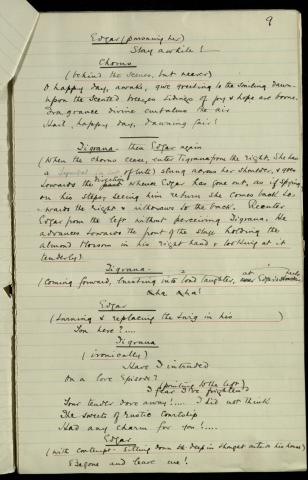 9
Edgar (pursuing her)
Stay awhile!
Chorus
(behind the scenes, but nearer)
O happy day, awake, give greeting to the smiling dawn
Upon the scented breezes tidings of joy & hope are borne,
Fragrance divine embalms the air
Hail, happy day, dawning fair!
Tigrana, then Edgar again
(When the chorus ceases, enter Tigrana from the right. She has
a (of lute) slung across her shoulder, & goes
towards the direction where Edgar has gone out, as if spying
on his steps; seeing him return she comes back to-
wards the right & withdraws to the back. Reenter
Edgar from the left without perceiving Tigrana. He
advances towards the front of the stage holding the
almond blossom in his right hand & looking at it
tenderly)
Tigrana
(coming forward, & breaking into loud laughter, at Edgar's)
Aha, Aha!
Edgar
(turning & replacing the sprig in his )
You here?....
Tigrana
(ironically)
Have I intruded
On a love Episode?
(pointing to the left)
I fear I've frightened
Your tender dove away!.... I did not think
The sweets of rustic courtship
Had any charm for you!....
Edgar
(with contempt - sitting down deep in thought outside his house)
Begone and leave me!